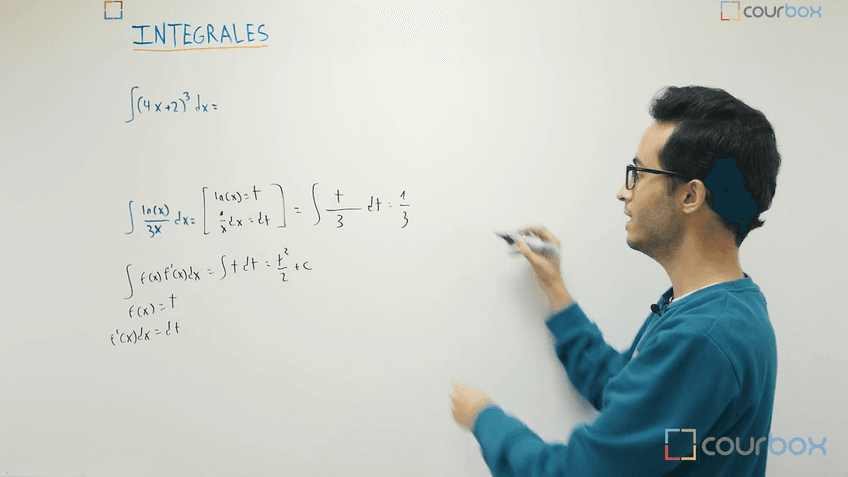 courbox
INTEGRALES
∫(4x+2)³ dx =
∫ ln(x)/3x dx = [ ln(x) = t
1/x dx = dt ] = ∫ t/3 dt = 1/3
∫ f(x) f'(x) dx = ∫ t dt = t²/2 + c
f(x) = t
f'(x)dx = dt
courbox